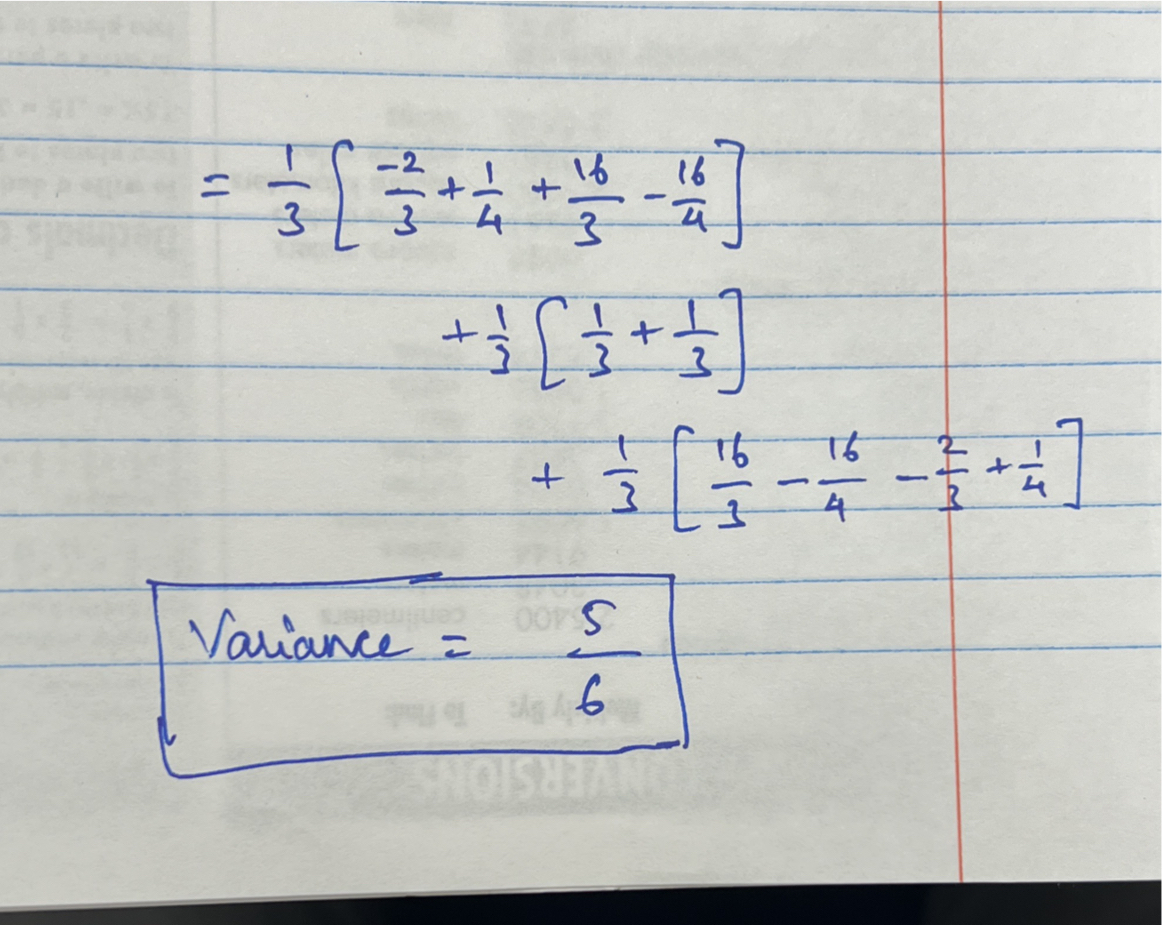 = 1/3 [ -2/3 + 1/4 + 16/3 - 16/4 ]
+ 1/3 [ 1/3 + 1/3 ]
+ 1/3 [ 16/3 - 16/4 - 2/3 + 1/4 ]
Variance = 5/6